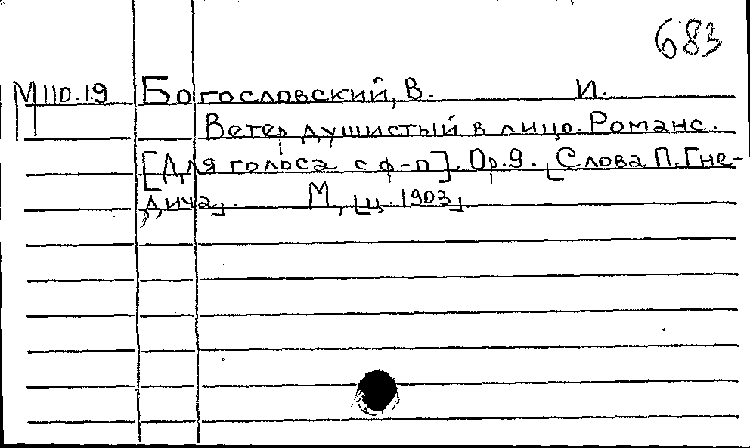 683
М110.19 Богословский, В. И.
Ветер душистый в лицо. Романс.
[Для голоса с ф-п]. Ор.9. [Слова П. Гне-
дича]. М, [ц. 1903]